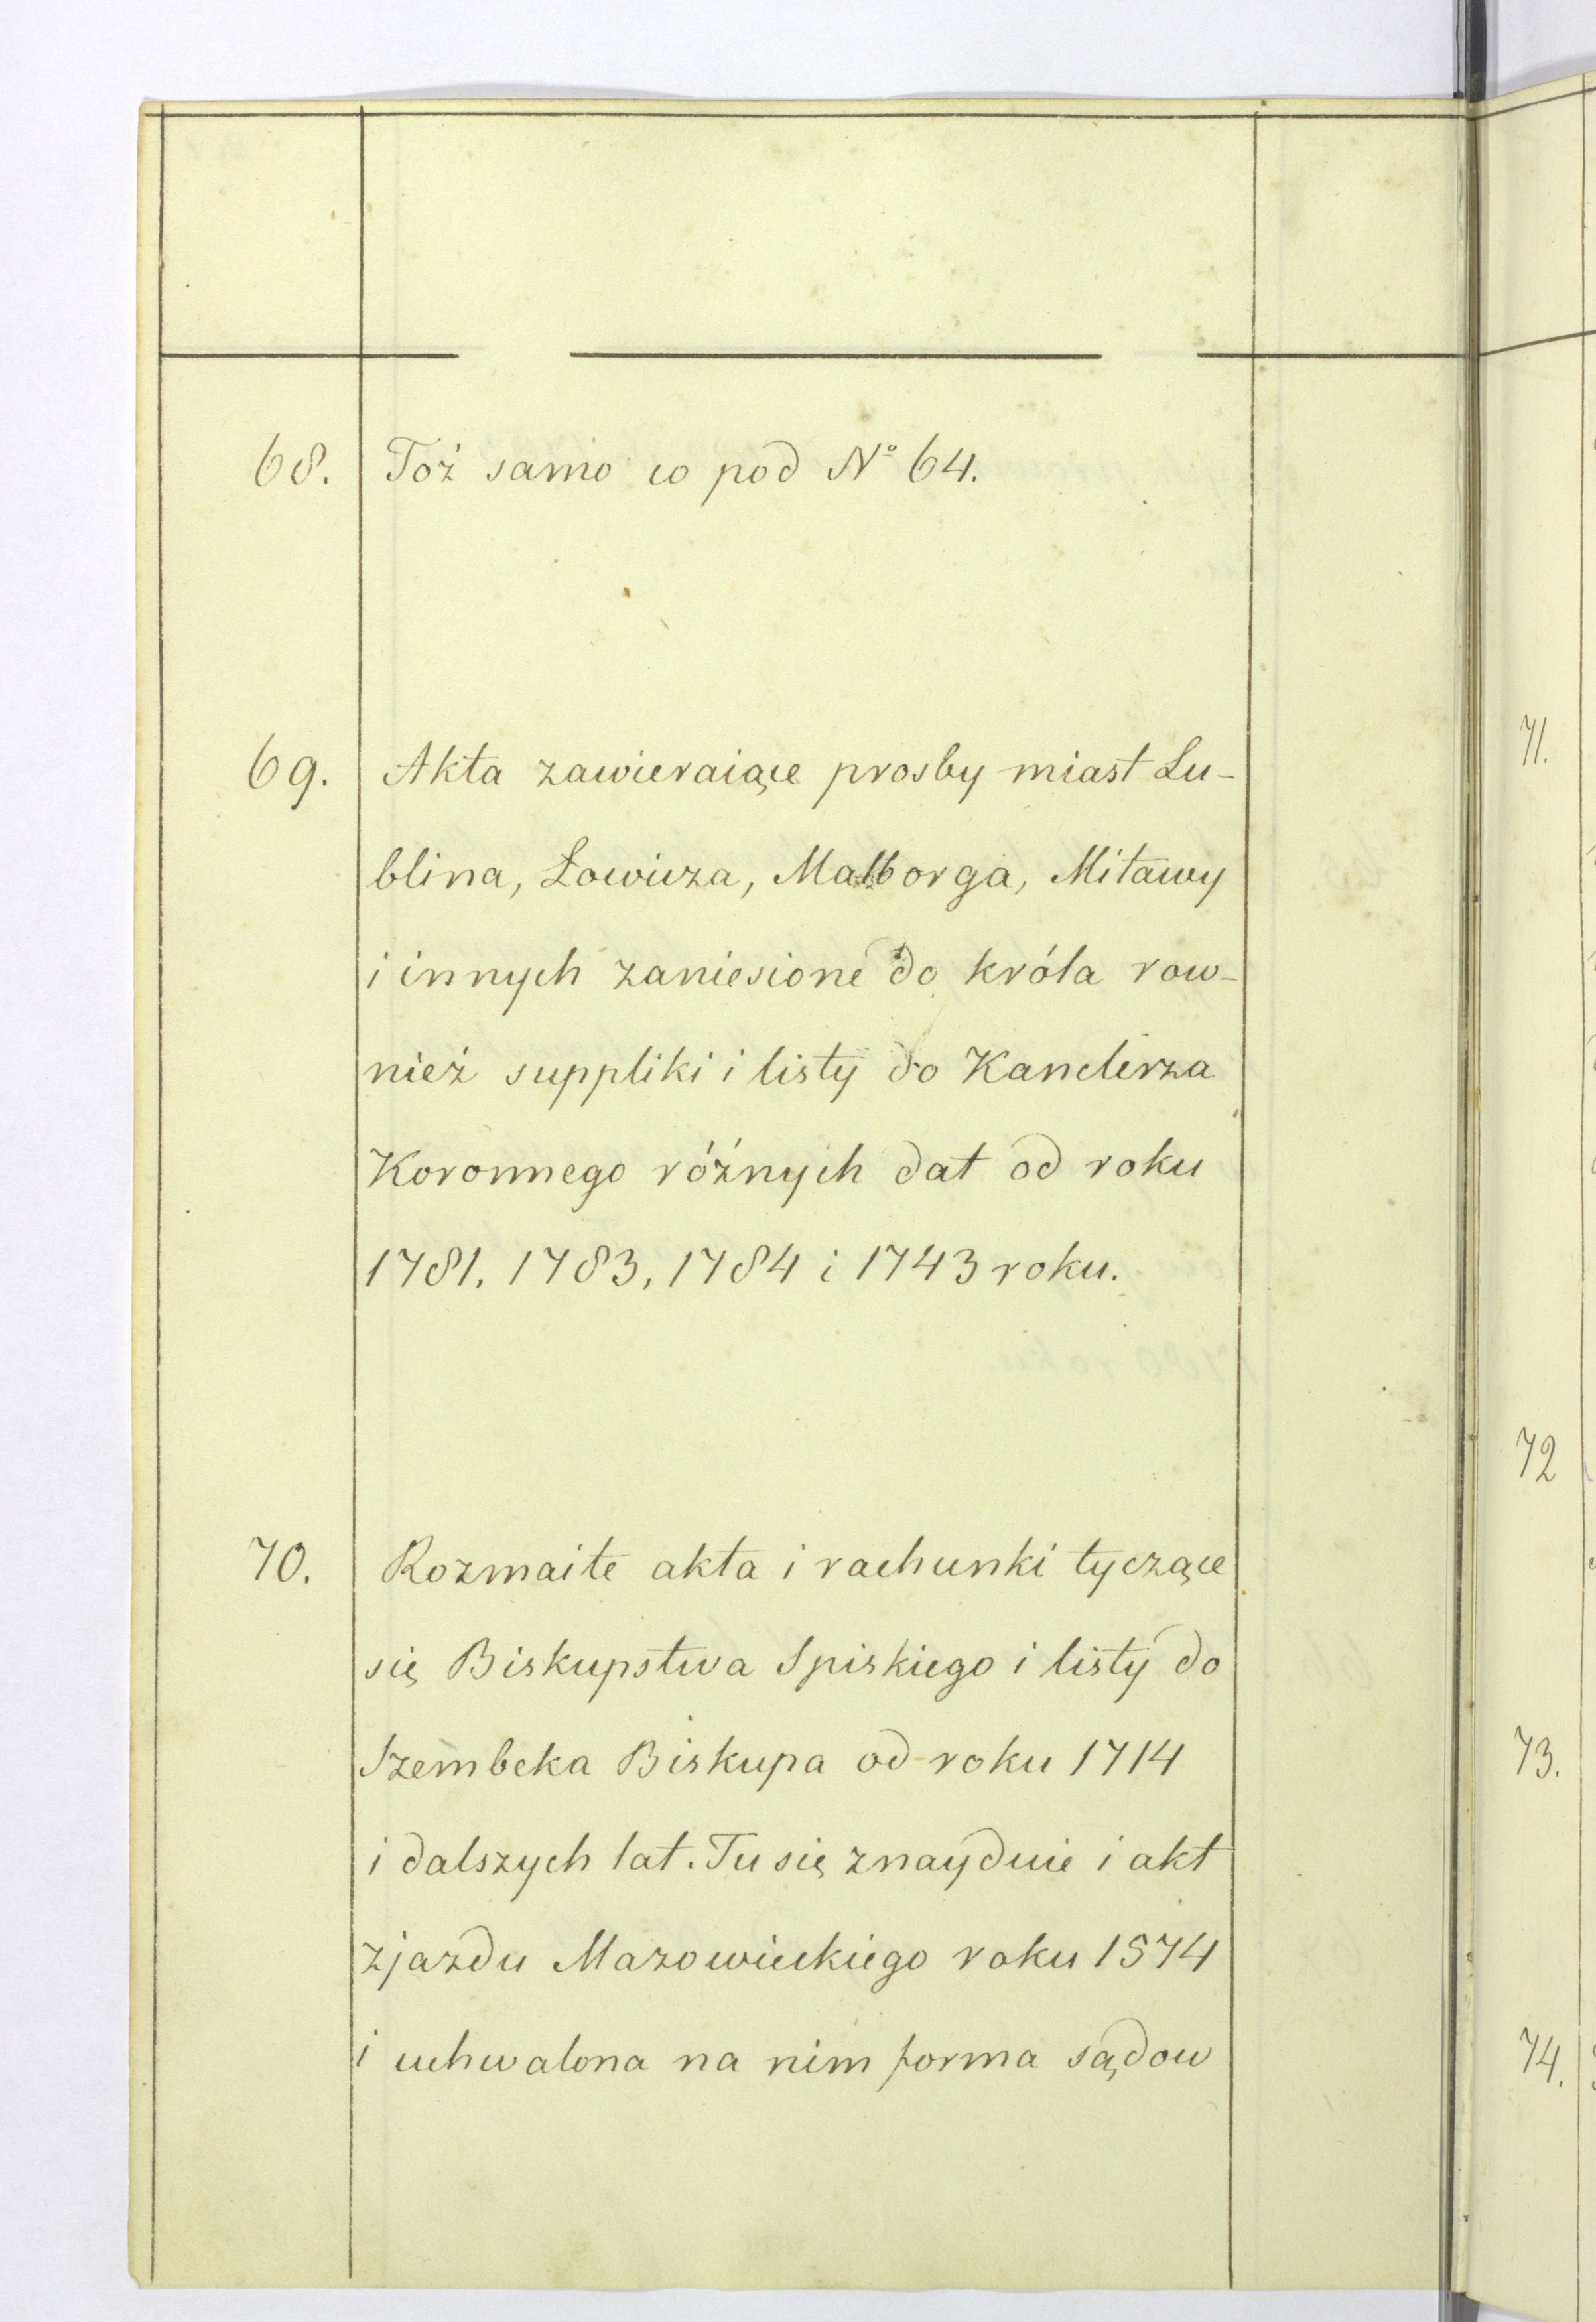 68. Toż samo co pod Nº 64.
69. Akta zawieraiące prosby miast Lu-
blina, Łowicza, Malborga, Mitawy
i innych zaniesione do króla row-
nież suppliki i listy do Kanclerza
Koronnego różnych dat od roku
1781. 1783. 1784 i 1743 roku.
70. Rozmaite akta i rachunki tyczące
się Biskupstwa Spiskiego i listy do
Szembeka Biskupa od roku 1714
i dalszych lat. Tu się znayduie i akt
zjazdu Mazowieckiego roku 1574
i uchwalona na nim forma sądow
71.
72
73.
74.